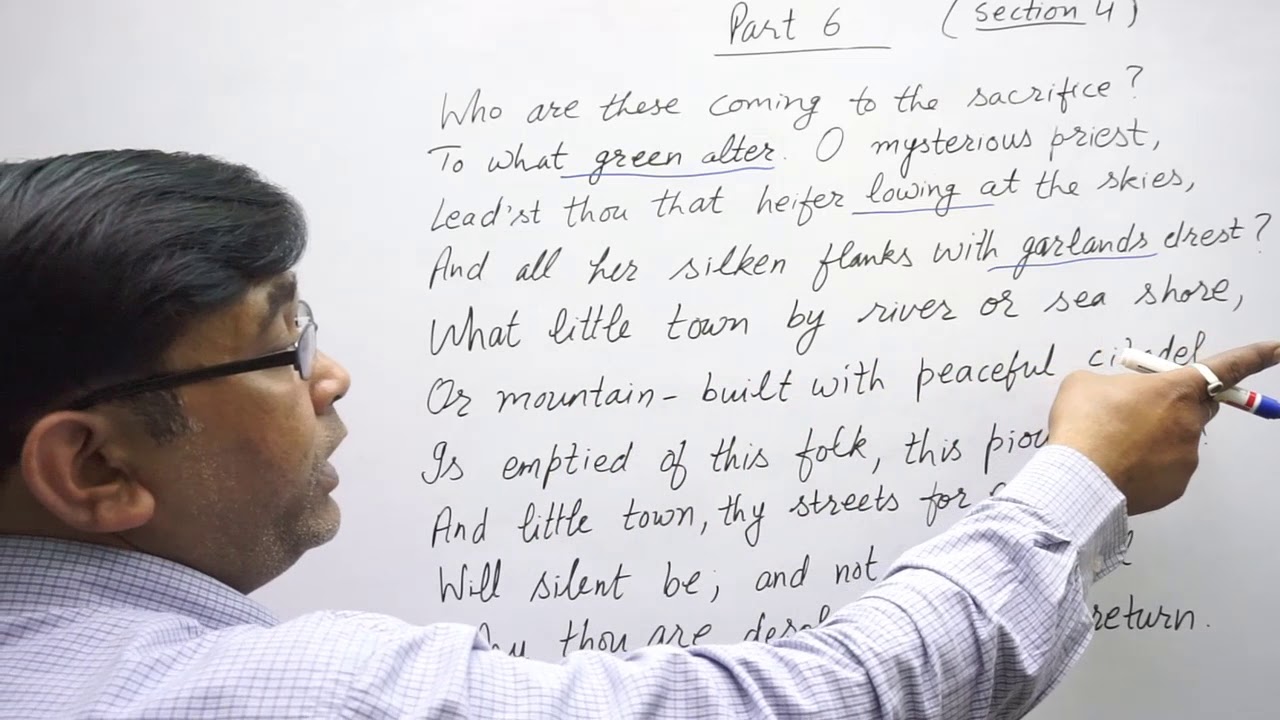 Part 6 (Section 4)
Who are these coming to the sacrifice?
To what green alter. O mysterious priest,
Lead'st thou that heifer lowing at the skies,
And all her silken flanks with garlands drest?
What little town by river or sea shore,
Or mountain-built with peaceful citadel
Is emptied of this folk, this
And little town, thy streets for
Will silent be; and not
thou are return.